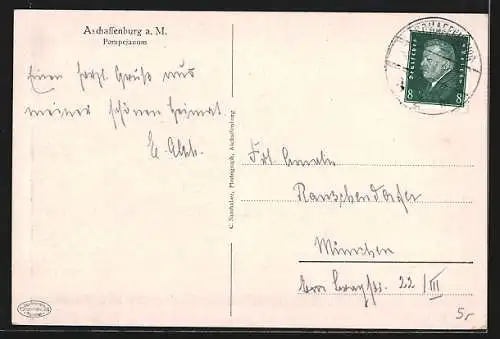 Aschaffenburg a. M.
Pompejanum
Einen herzl. Gruß aus
meiner schönen Heimat
C. Samhaber, Photograph, Aschaffenburg
DEUTSCHES REICH
8 8
Frl.
Rauschendorfer
München
22/III
5r